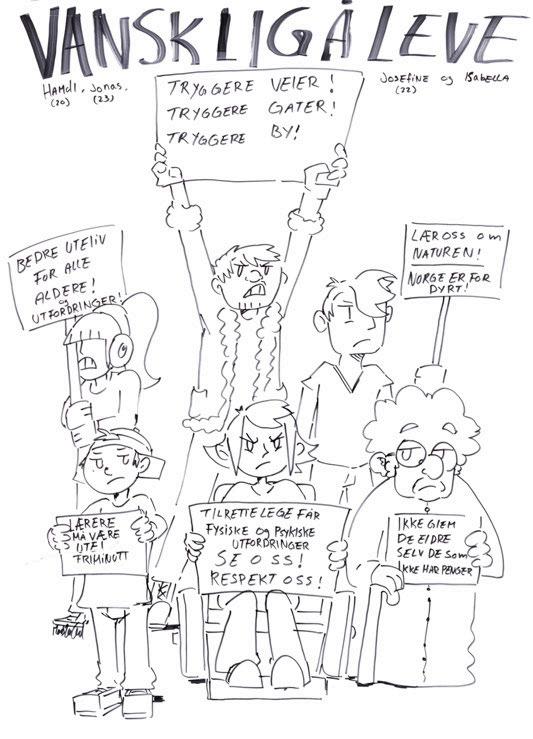 VANSKLIG Å LEVE
HAMDI, JONAS,
(20) (23)
JOSEFINE og ISABELLA
(22)
TRYGGERE VEIER!
TRYGGERE GATER!
TRYGGERE BY!
BEDRE UTELIV
FOR ALLE
ALDERE!
og
UTFORDRINGER!
LÆR OSS om
NATUREN!
NORGE ER FOR
DYRT!
LÆRERE
MÅ VÆRE
UTE I
FRIMINUTT
TILRETTELEGE FÅR
FYSISKE OG PSYKISKE
UTFORDRINGER
SE OSS!
RESPEKT OSS!
IKKE GLEM
DE ELDRE
SELV DE SOM
IKKE HAR PENGER